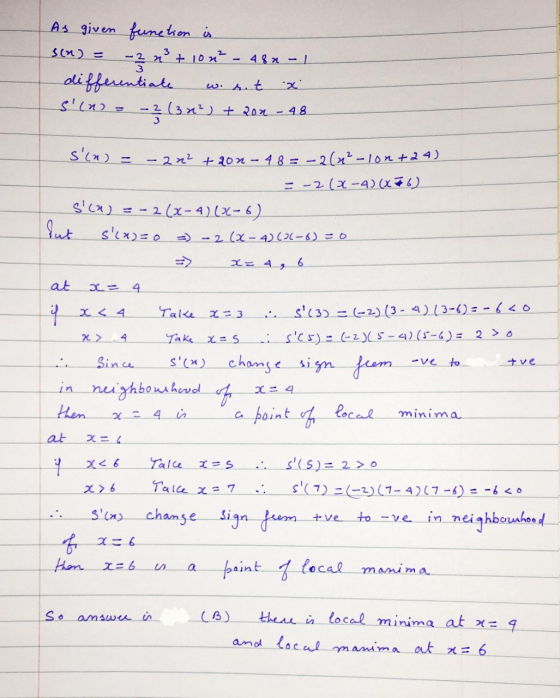 As given function is
s(x) = -2/3 x³ + 10x² - 48x - 1
differentiate w.r.t 'x'
S'(x) = -2/3 (3x²) + 20x - 48
S'(x) = -2x² + 20x - 48 = -2(x² - 10x + 24)
= -2(x-4)(x-6)
S'(x) = -2(x-4)(x-6)
Put S'(x)=0 ⇒ -2(x-4)(x-6) = 0
⇒ x = 4, 6
at x = 4
if x < 4 Take x=3 ∴ S'(3) = (-2)(3-4)(3-6) = -6 < 0
x > 4 Take x=5 ∴ S'(5) = (-2)(5-4)(5-6) = 2 > 0
∴ Since S'(x) change sign from -ve to +ve
in neighbourhood of x = 4
then x = 4 is a point of local minima
at x = 6
if x<6 Take x=5 ∴ S'(5) = 2 > 0
x>6 Take x=7 ∴ S'(7) = (-2)(7-4)(7-6) = -6 < 0
∴ S'(x) change sign from +ve to -ve in neighbourhood
of x = 6
then x=6 is a point of local maxima
So answer is (B) there is local minima at x = 4
and local maxima at x = 6